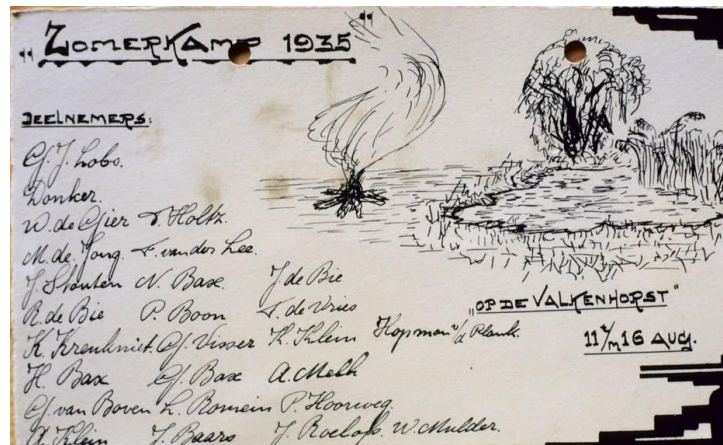 „ ZOMERKAMP 1935 "
DEELNEMERS:
G. J. Lobo.
Donker.
W. de Gier T. Holtz.
M. de Jong. F. van der Lee.
J. Stouten N. Bax. J. de Bie
R. de Bie P. Boon T. de Vries
K. Kreukniet. G. Visser K. Klein Hopman v/d Plank.
H. Bax G. Bax A. Melk
G. van Boven L. Romein P. Hoorweg.
A. Klein J. Baars J. Roelofs. W. Mulder.
„OP DE VALKENHORST"
11 t/m 16 AUG.